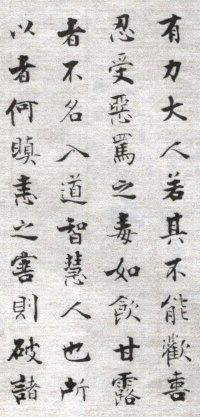 有力大人若其不能歡喜
忍受惡罵之毒如飲甘露
者不名入道智慧人也所
以者何瞋恚之害則破諸